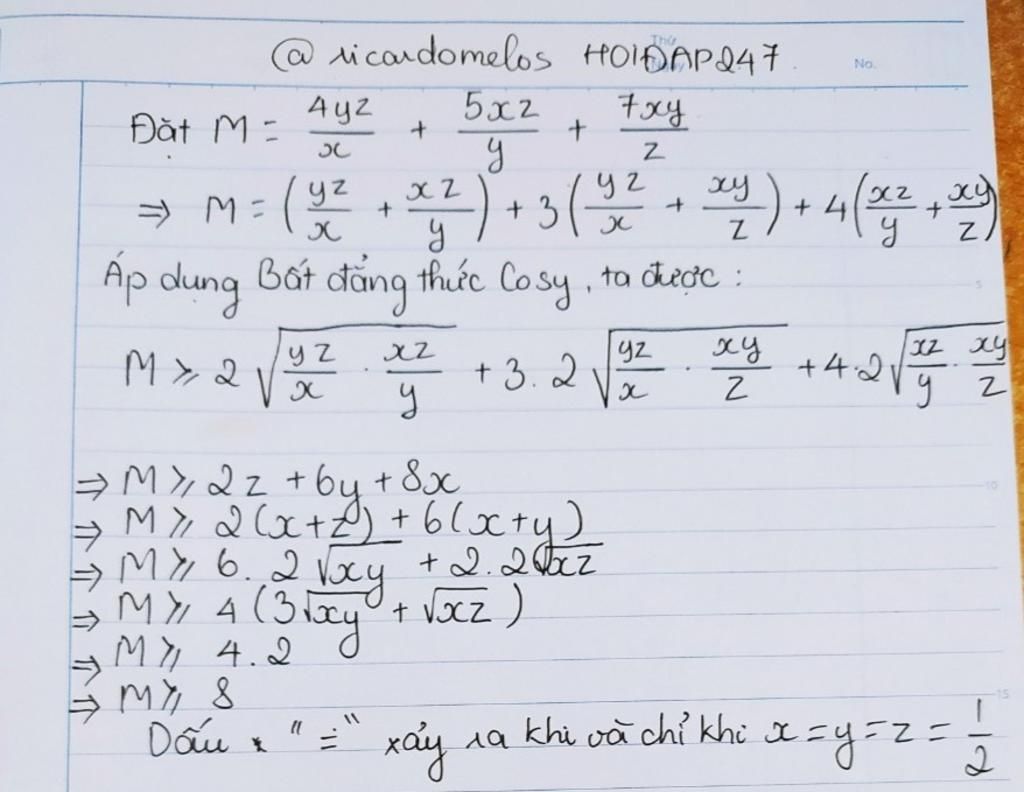 @ricardomelos HOIĐAP247
Thứ
Ngày
No.
Đặt M = 4yz/x + 5xz/y + 7xy/z
⇒ M = (yz/x + xz/y) + 3(yz/x + xy/z) + 4(xz/y + xy/z)
Áp dụng Bất đẳng thức Cosy, ta được:
M ⩾ 2√(yz/x · xz/y) + 3.2√(yz/x · xy/z) + 4.2√(xz/y · xy/z)
⇒ M ⩾ 2z + 6y + 8x
⇒ M ⩾ 2(x+z) + 6(x+y)
⇒ M ⩾ 6.2√xy + 2.2√xz
⇒ M ⩾ 4(3√xy + √xz)
⇒ M ⩾ 4.2
⇒ M ⩾ 8
Dấu "=" xảy ra khi và chỉ khi x = y = z = 1/2
5
10
15